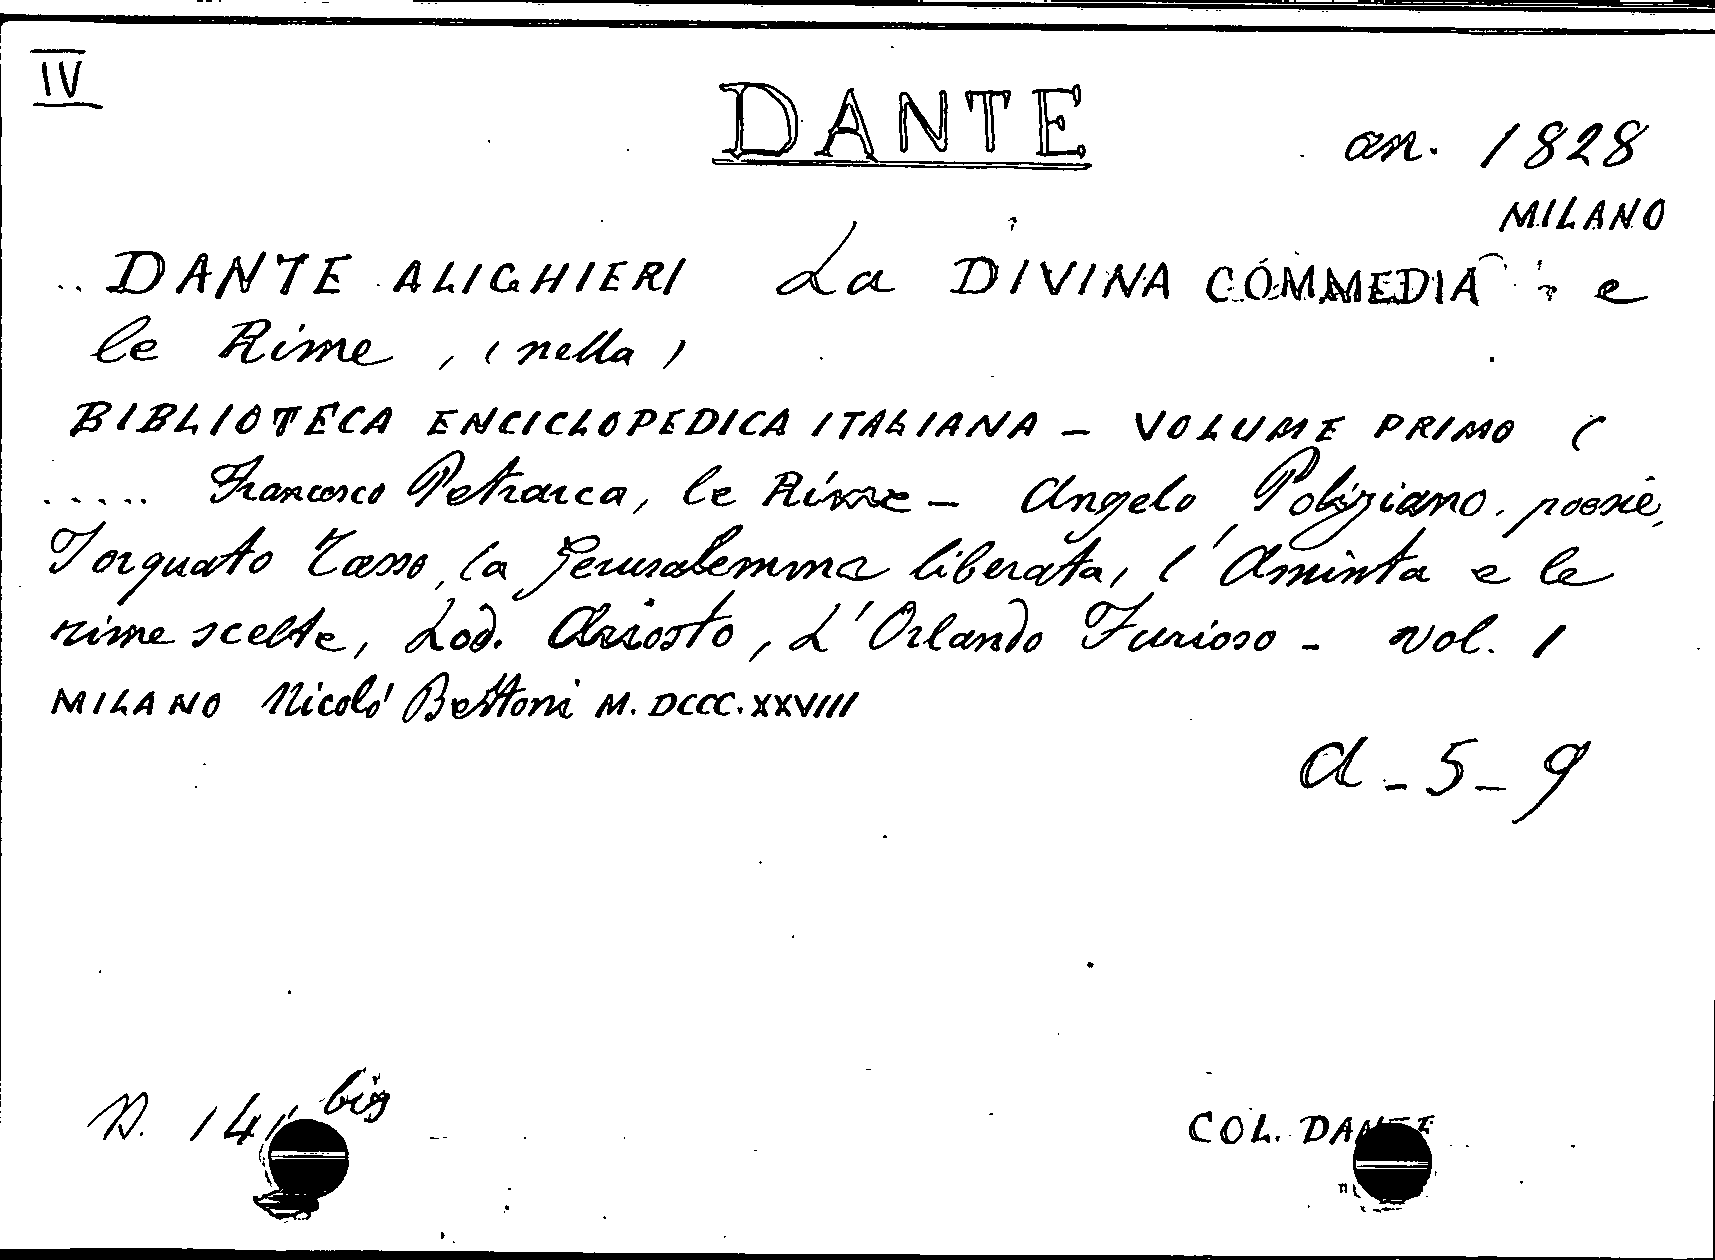 IV
DANTE
an. 1828
MILANO
.. DANTE ALIGHIERI La DIVINA COMMEDIA : e
le Rime, (nella)
BIBLIOTECA ENCICLOPEDICA ITALIANA - VOLUME PRIMO (
..... Francesco Petrarca, le Rime - Angelo Poliziano, poesie,
Torquato Tasso, la Gerusalemme liberata, l'Aminta e le
rime scelte, Lod. Ariosto, L'Orlando Furioso - vol. 1
MILANO Nicolò Bettoni M. DCCC. XXVIII
a - 5 - 9
N. bis
COL. DANTE